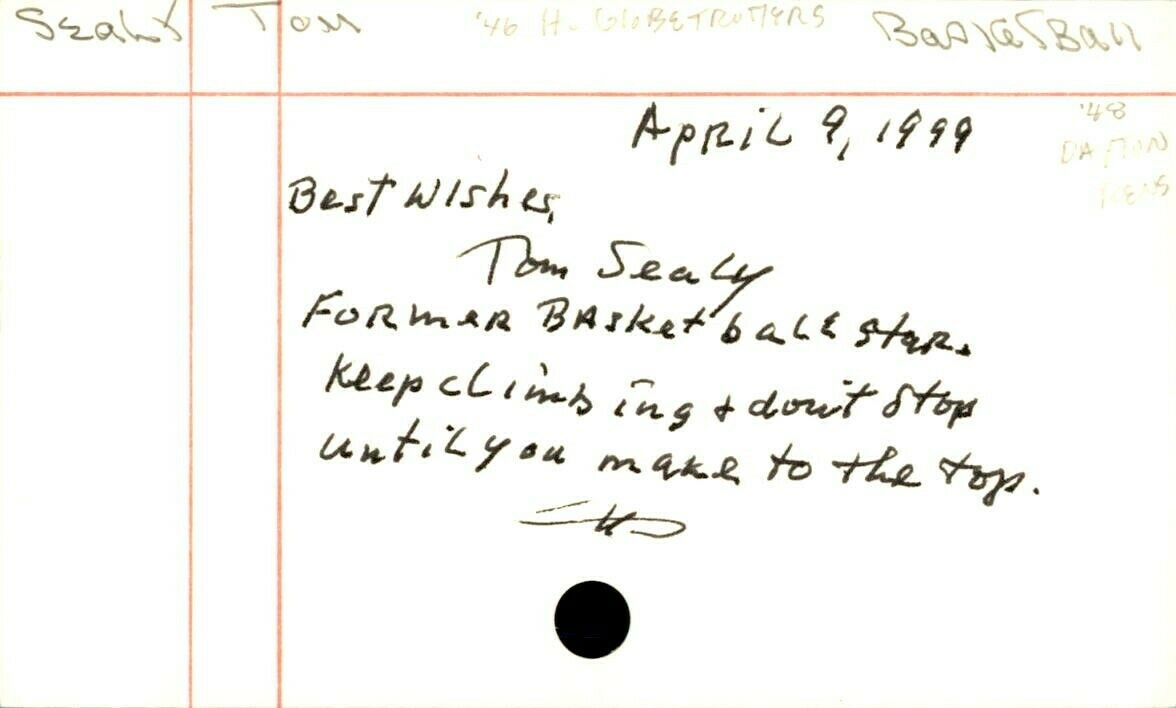 Sealy Tom '46 H. GLOBETROTTERS BasketBall
'48
April 9, 1999
DAYTON
RENS
Best Wishes,
Tom Sealy
Former Basketball star.
Keep climbing + don't stop
until you make to the top.